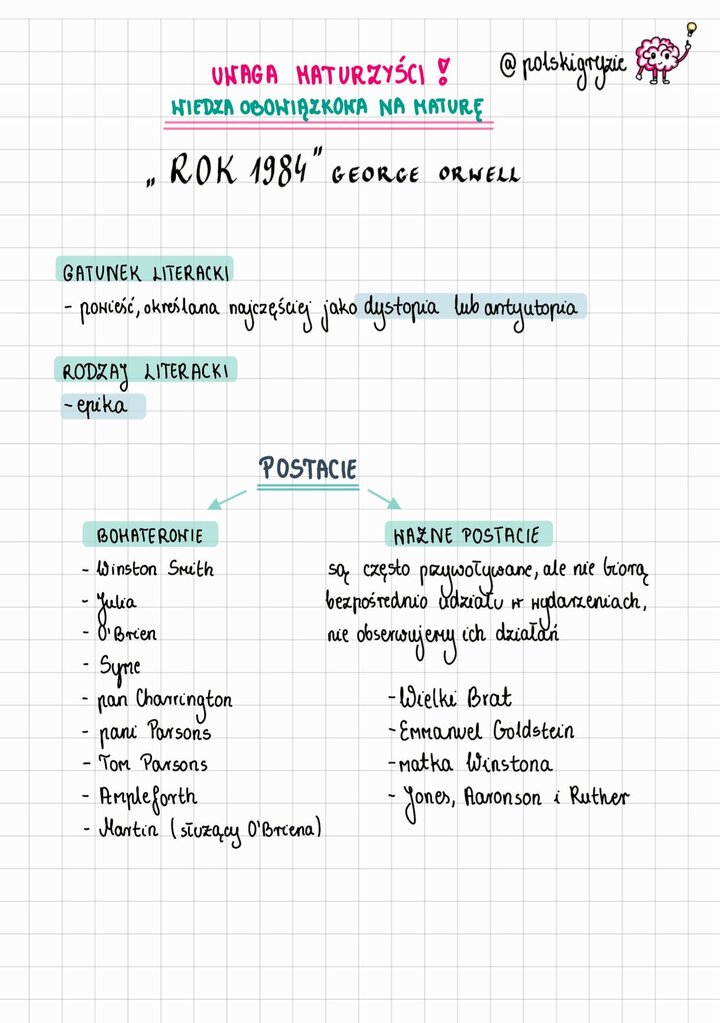 UWAGA MATURZYŚCI!
@polskigryzie
WIEDZA OBOWIĄZKOWA NA MATURĘ
„ROK 1984" GEORGE ORWELL
GATUNEK LITERACKI
- powieść, określana najczęściej jako dystopia lub antyutopia
RODZAJ LITERACKI
- epika
POSTACIE
BOHATEROWIE
- Winston Smith
- Julia
- O'Brien
- Syme
- pan Charrington
- pani Parsons
- Tom Parsons
- Ampleforth
- Martin (służący O'Briena)
WAŻNE POSTACIE
są często przywoływane, ale nie biorą
bezpośrednio udziału w wydarzeniach,
nie obserwujemy ich działań
- Wielki Brat
- Emmanuel Goldstein
- matka Winstona
- Jones, Aaronson i Ruther